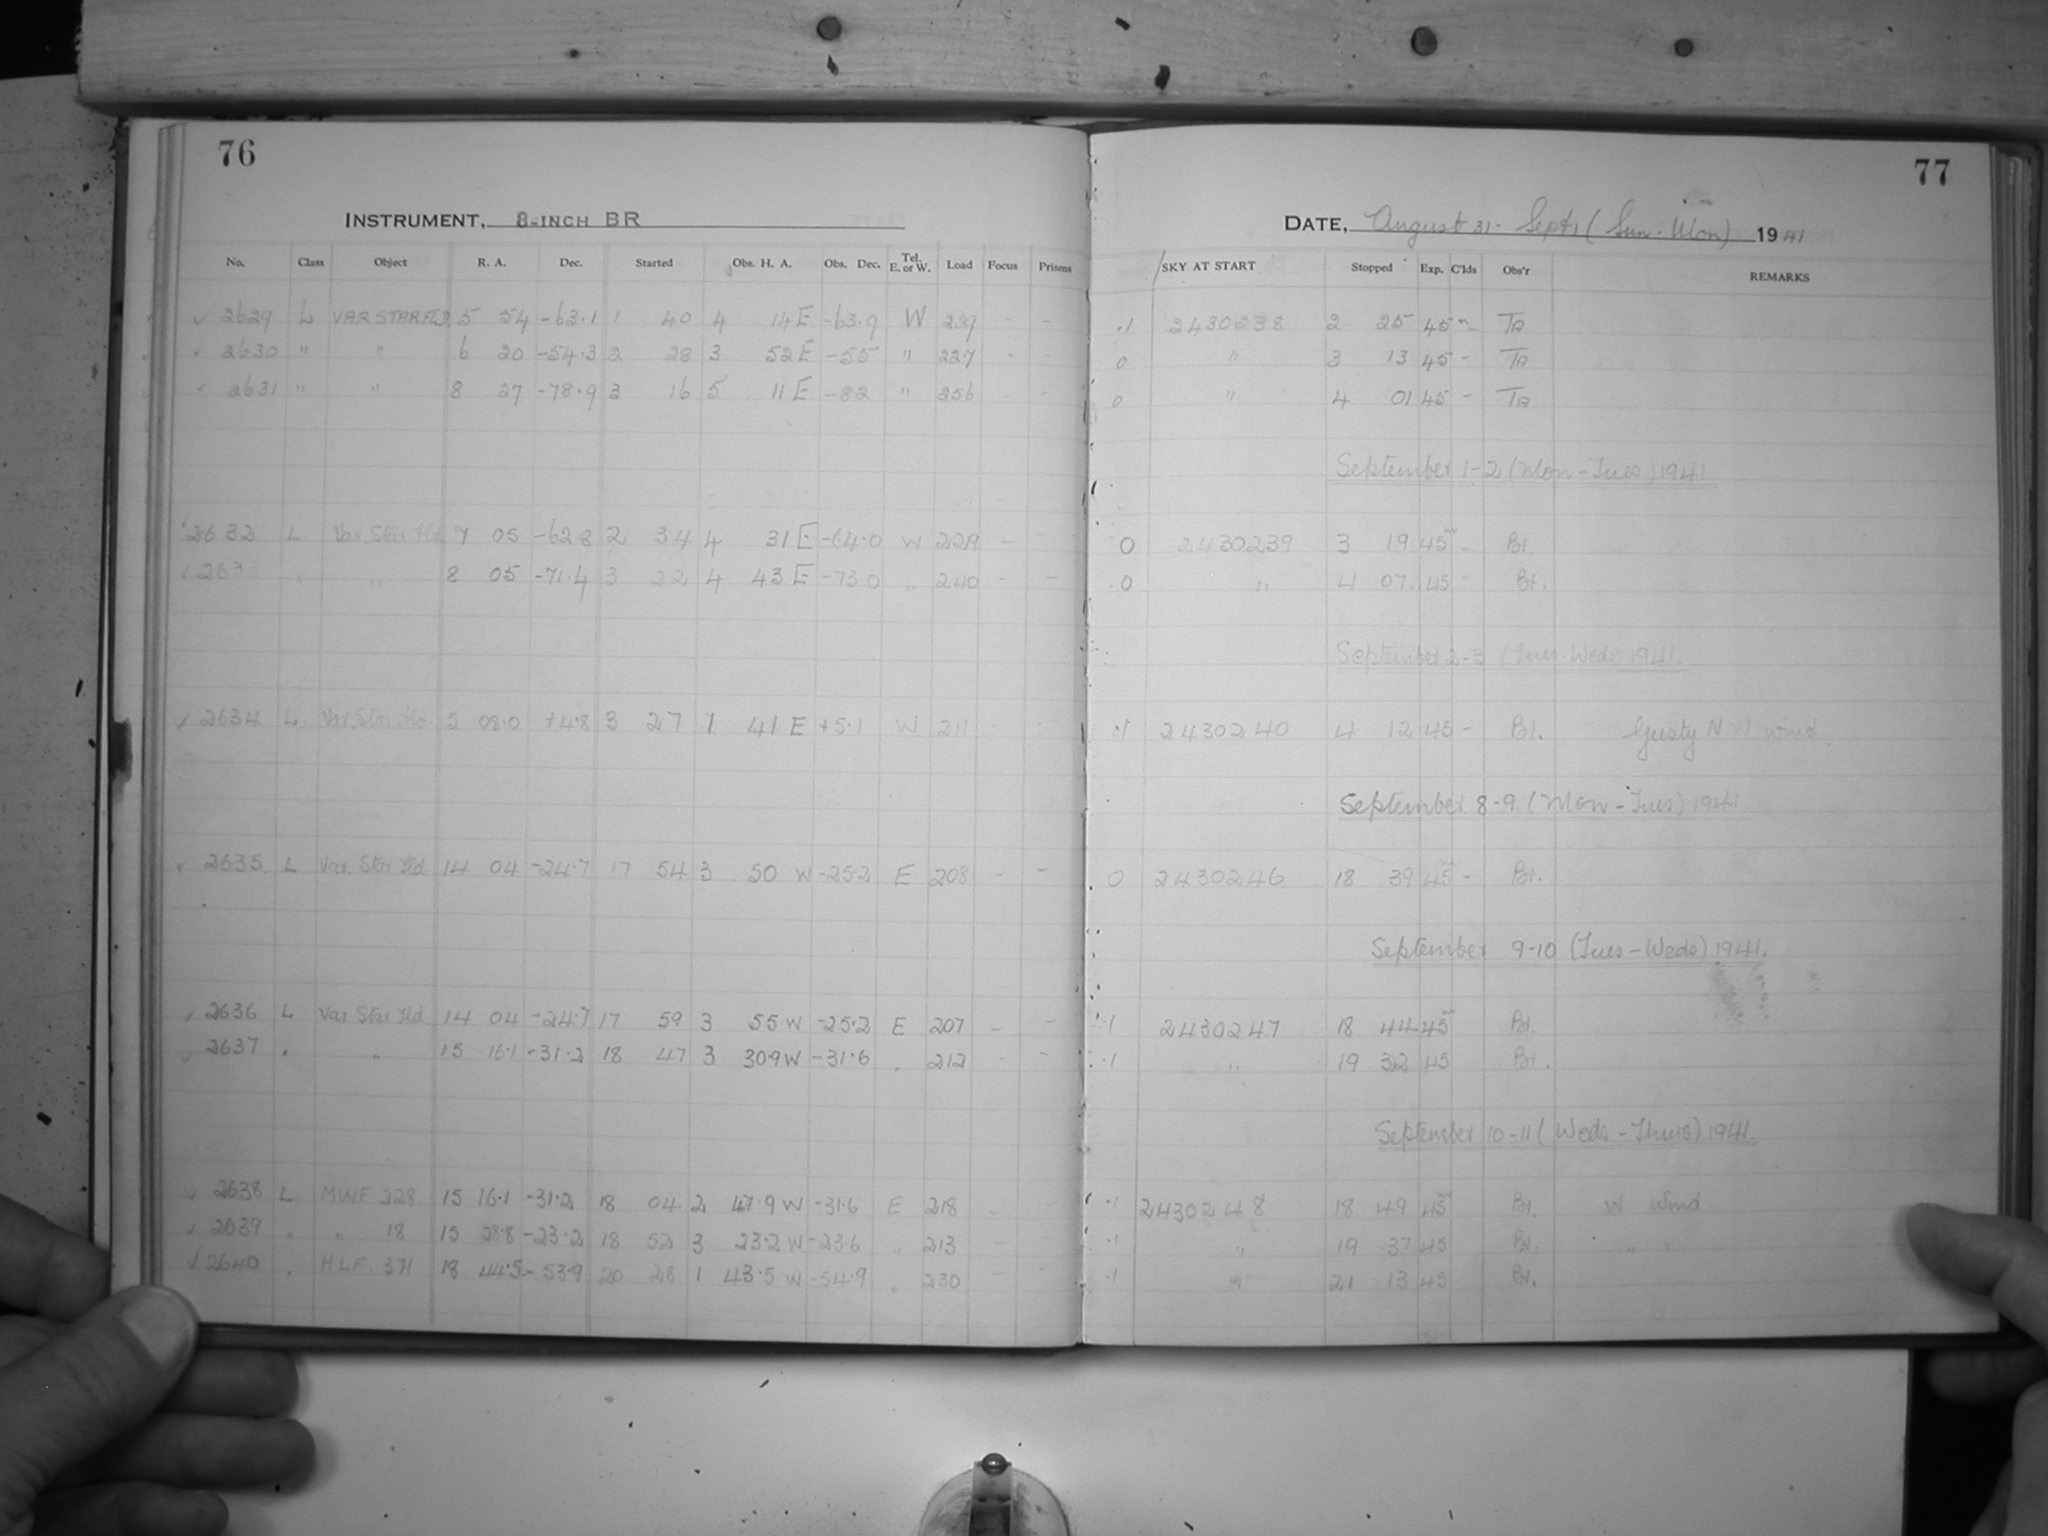 76
INSTRUMENT, 8-INCH BR
No. Class Object R. A. Dec. Started Obs. H. A. Obs. Dec. Tel. E. or W. Load Focus Prisms
2629 L VAR STAR FLD 5 54 -63.1 1 40 4 14 E -63.9 W 239 - -
2630 " " 6 20 -54.3 2 28 3 52 E -55 " 227 - -
2631 " " 8 27 -78.9 3 16 5 11 E -82 " 256 - -
2632 L Var. Star Fld. 7 05 -62.8 2 34 4 31 E -64.0 W 229 - -
2633 " " 8 05 -71.4 3 22 4 43 E -73.0 " 240 - -
2634 L. Var. Star Fld. 5 08.0 +4.8 3 27 1 41 E +5.1 W 211 - -
2635 L Var. Star Fld 14 04 -24.7 17 54 3 50 W -25.2 E 208 - -
2636 L Var Star Fld 14 04 -24.7 17 59 3 55 W -25.2 E 207 - -
2637 " " 15 16.1 -31.2 18 47 3 30.9 W -31.6 " 212 - -
2638 L MWF 228 15 16.1 -31.2 18 04 2 47.9 W -31.6 E 218 - -
2639 " " 18 15 28.8 -23.2 18 52 3 23.2 W -23.6 " 213 -
2640 " HLF. 371 18 44.5 -53.9 20 28 1 43.5 W -54.9 " 230 -
77
DATE, August 31 - Sept 1 (Sun - Mon) 1941
SKY AT START Stopped Exp. C'lds Obs'r REMARKS
.1 2430238 2 25 45m - TA
0 " 3 13 45 - TA
0 " 4 01 45 - TA
September 1-2 (Mon - Tues) 1941
0 2430239 3 19 45m - Bl.
0 " 4 07 45 - Bl.
September 2-3 (Tues - Weds) 1941.
.1 2430240 4 12 45 - Bl. Gusty N W wind
September 8-9 (Mon - Tues) 1941
0 2430246 18 39 45m - Bl.
September 9-10 (Tues - Weds) 1941.
.1 2430247 18 44 45m Bl.
.1 " 19 32 45 Bl.
September 10-11 (Weds - Thurs) 1941.
.1 2430248 18 49 45m Bl. W Wind
.1 " 19 37 45 Bl. " "
.1 " 21 13 45 Bl.